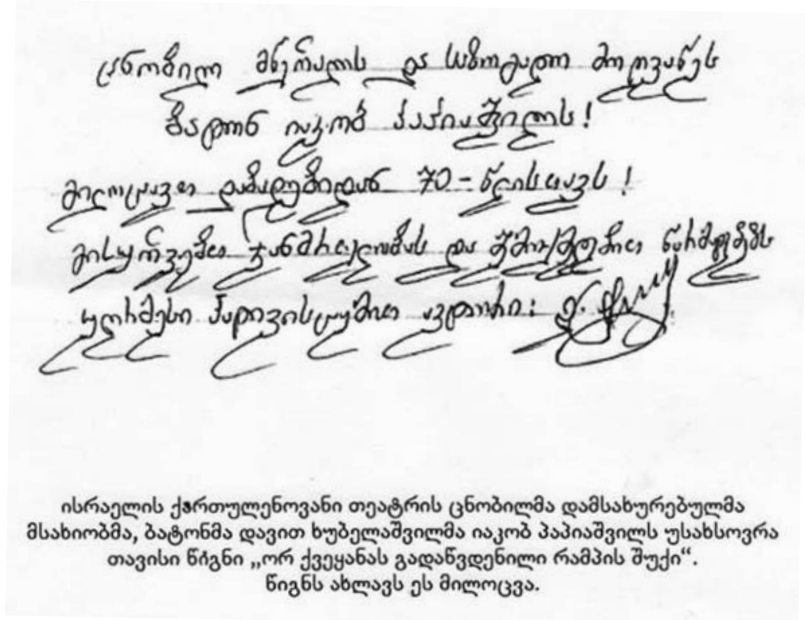 ცნობილ მწერალს და საზოგადო მოღვაწეს
ბატონ იაკობ პაპიაშვილს!
გილოცავთ დაბადებიდან 70-წლისთავს!
გისურვებთ ჯანმრთელობას და შემოქმედებით წარმატებებს
ულრმესი პატივისცემით ავტორი:
ისრაელის ქართულენოვანი თეატრის ცნობილმა დამსახურებულმა
მსახიობმა, ბატონმა დავით ხუბელაშვილმა იაკობ პაპიაშვილს უსახსოვრა
თავისი წიგნი „ორ ქვეყანას გადაწვდენილი რამპის შუქი“.
წიგნს ახლავს ეს მილოცვა.